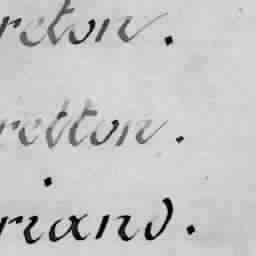 reton.
retton.
riand.